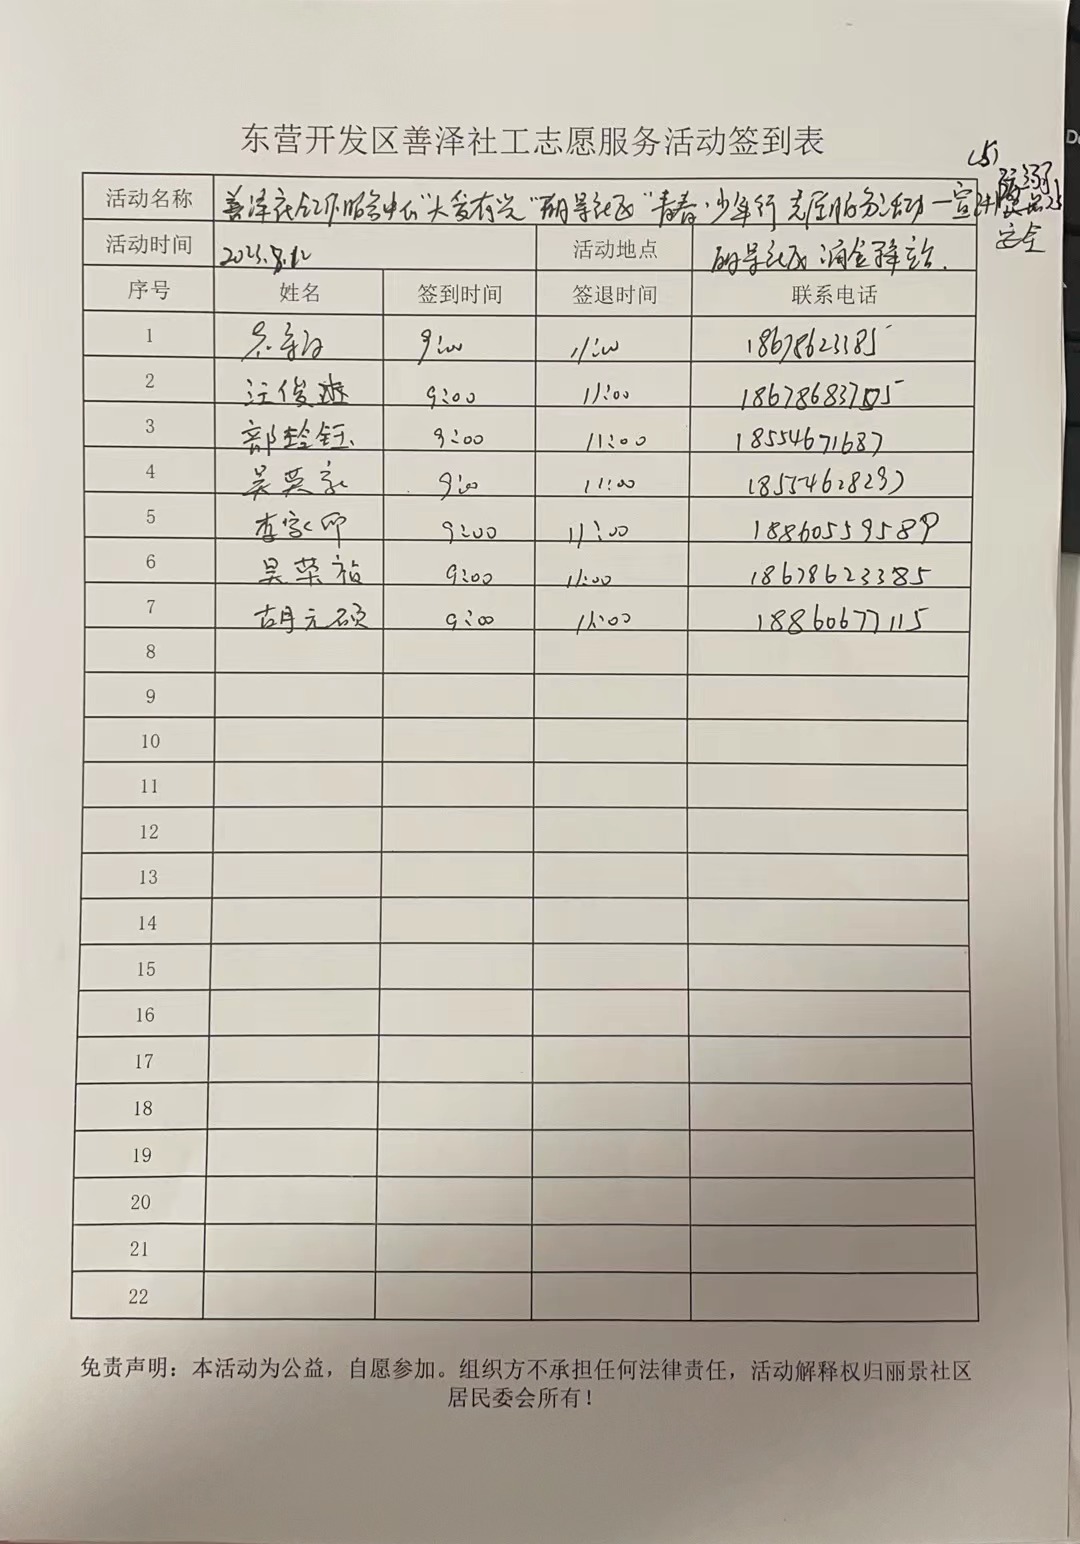 东营开发区善泽社工志愿服务活动签到表
(5)
活动名称 善泽社会工作服务中心“大爱有光”丽景社区“青春·少年行 志愿服务活动—宣讲防溺
安全
活动时间 2023.8.12 活动地点 丽景社区
序号 姓名 签到时间 签退时间 联系电话
1 9:00 11:00
2 汪俊 9:00 11:00
3 9:00 11:00 18554671687
4 吴英 9:00 11:00
5 李家 9:00 11:00 18860559589
6 吴荣 9:00 11:00 18678623385
7 胡元硕 9:00 11:00 18860677115
8
9
10
11
12
13
14
15
16
17
18
19
20
21
22
免责声明：本活动为公益，自愿参加。组织方不承担任何法律责任，活动解释权归丽景社区
居民委会所有！